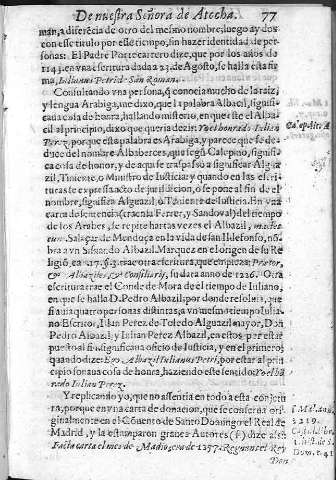 De nuestra Señora de Atocha. 77
man, a diferēcia de otro del mesmo nombre; luego ay dos
con esse titulo por esse tiempo, sin hazer identidad de per-
sonas: El Padre Portecarrero dize, que por los años de
1143. en vna escritura dada a 23. de Agosto, se halla esta fir
ma, Iulianus Petrid-San Roman.
Consultando vna persona, q̃ conocia mucho de la raiz,
y lengua Arabiga, me dixo, que la palabra Albacil, signifi-
caua cosa de honra, hallando misterio, en que este el Alba
cil al principio, dixo que queria dezir: Yo el honrado Iulian
Perez, porque esta palabra es Arabiga, y parece que se de-
duce del nombre Albaberces, que segũ Calepino, signifi-
ca cosa de honor, y de aqui se traspasso a significar Algua-
zil, Teniente, o Ministro de Iusticia; y quando en las escri-
turas te expressa acto de jurisdicion, o se pone al fin de el
nombre, significa Alguazil, ò Teniente de Iusticia. En vna
carta de sentencia (trae la Ferrer, y Sandoval) del tiempo
de los Arabes, se repite hartas vezes el Albazil,
eum. Salazar de Mendoça en la vida de san Ildefonso, nō-
bra a vn Silvardo Albazil. Marquez en el origen de su Re
ligiō, ca. 17. §. 3. trae otra escritura, que empieza: Pretor,
& Albaziles, & Consiliarij, su data año de 1226. Otra
escritura trae el Conde de Mora de el tiempo de Iuliano,
en que se halla D. Pedro Albazil, por donde resolura, que
fi auia quatro personas distintas, a vn mesmo tiempo Iulia-
no Escritor, Ilian Perez de Toledo Alguazil mayor, Don
Pedro Albazil, y Iulian Perez Albazil, en estos, por estar
pue sto al fin, significaua oficio de Iusticia, y en el primero;
quando dize: Ego Albazil Iulianus Petri, por estar al prin
cipio sonaua cosa de honra, haziendo este sentido: Yo el hō
rado Iulian Perez.
Y replicando yo, que no assentia en todo a esta conjetu
ra, porque en vna carta de donacion, que se conserua ori-
ginalmente en el Cōuento de Santo Domingo el Real de
Madrid, y la estamparon granes Autores (f) dize assi:
Facta carta el mes de Madio, era de 1257. Reynante el Rey
Don